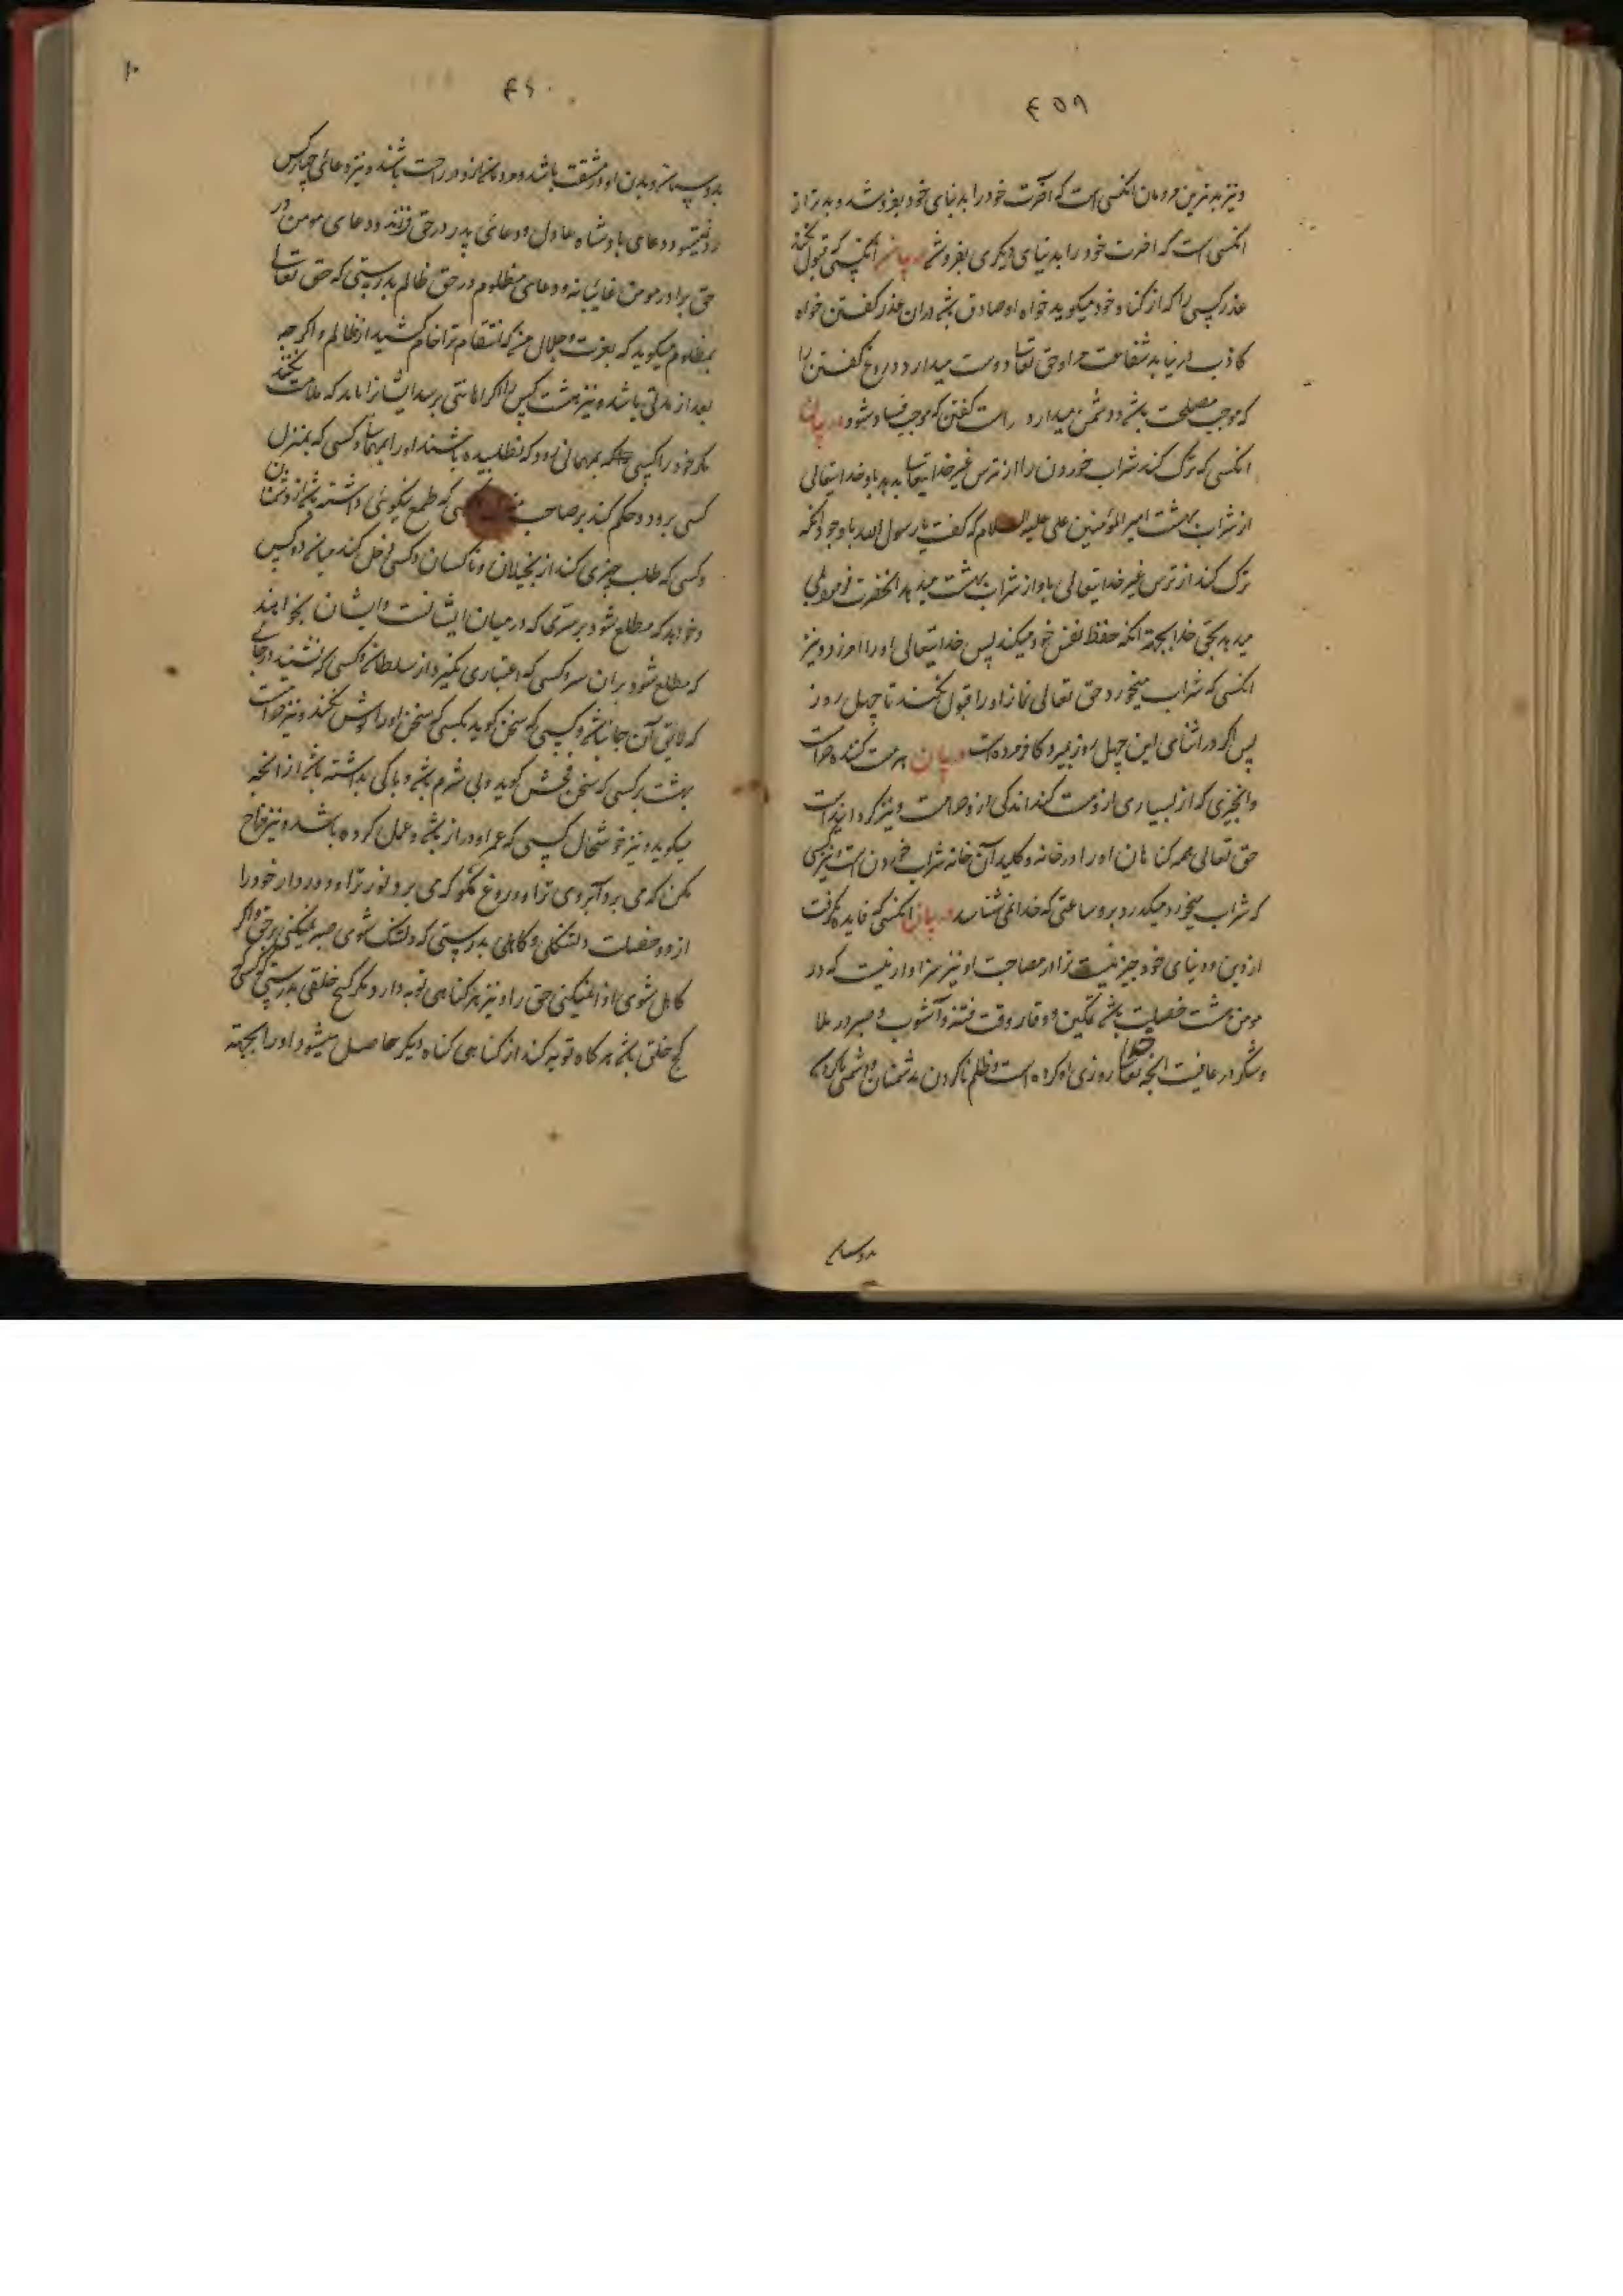 ۴۵۹
و نیز بدترین مردمان انکسی است که آخرت خود را بدنیای خود بفروشد و بدتر از
انکسی است که اخرت خود را بدنیای دیکری بفروشد در بیان انکسی که قبول نکند
عذر کسی را که از کناه خود میکوید خواه او صادق باشد دران عذر کفتن خواه
کاذب در نیابد شفاعت مرا و حق تعالی دوست میدارد دروغ کفتن را
که موجب مصلحت باشد و دشمن میدارد راست کفتن که موجب فساد شود در بیان
انکسی که ترک کند شراب خوردن را از ترس غیر خدایتعالی بدهد باو خدایتعالی
از شراب بهشت امیر المؤمنین علی علیه السلام که کفت یا رسول الله با وجود انکه
ترک کند از ترس غیر خدایتعالی باو از شراب بهشت میدهد انحضرت فرمود بلی
میدهد بحق خدا بجهة انکه حفظ نفس خود میکند پس خدایتعالی او را امرزد و نیز
انکسی که شراب میخورد حق تعالی نماز او را قبول نکند تا چهل روز
پس اکر در اثنای این چهل روز بمیرد کافر مرده است در بیان هر مست کننده حرام است
و انچیزی که از بسیاری او مست کند اندکی از و حرامست و نیز کردانیده است
حق تعالی همه کناهان او را در خانه و کلید آن خانه شراب خوردن است و نیز کسی
که شراب میخورد میکذرد برو ساعتی که خدا نمی شناسد در بیان انکسی که فایده نکرفت
از دین و دنیای خود چیز نیست ترا در مصاحبت او نیز سزاوار نیست که در
مومن هشت خصلت باشد تمکین و وقار وقت فتنه و آشوب و صبر در بلا
و شکر در عافیت انچه خدا تعالی روزی او کرده است و ظلم ناکردن بدشمنان و دشمنی ناکردن
بدوستان
۴۶۰
بدوستان و بدن او در مشقت باشد و مردمان از و در راحت باشند و نیز دعای چهار کس
رد نمیشود دعای پادشاه عادل و دعای پدر در حق فرزند و دعای مومن در
حق برادر مومن غایبانه و دعای مظلوم در حق ظالم بدرستی که حق تعالی
بمظلوم میکوید که بعزت و جلال من که انتقام ترا خواهم کشید از ظالم و اکر چه
بعد از مدتی باشد و نیز هشت کس را اکر اهانتی برسد ایشانرا باید که ملامت نکنند
مکر خود را کسی که بمهمانی رود که نطلبیده باشند او را بمهمانی و کسی که بمنزل
کسی برود و حکم کند بر صاحب منزل و کسی که طمع نیکوئی داشته باشد از دشمنان
و کسی که طلب چیزی کند از بخیلان و ناکسان و کسی دخل کند میانه دو کس
و خواهد که مطلع شود بر سری که در میان ایشانست و ایشان نخواهند
که مطلع شود بران سر و کسی که اعتباری نکیرد از سلطان و کسی که نشیند در جائی
که لایق آن جا نباشد و کسی که سخن کوید بکسی که سخن او را کوش نکند و نیز حرام است
بهشت بر کسی که سخن فحش کوید و بی شرم باشد و باکی نداشته باشد از انچه
میکوید و نیز خوشحال کسی که عمر او دراز باشد و عمل کرده باشد و نیز مزاح
مکن که می برد آبروی ترا و دروغ مکو که می برد نور ترا و دور دار خود را
از دو خصلت دلتنکی و کاهلی بدرستی که دلتنک شوی صبر نمیکنی بر حق و اکر
کاهل شوی ادا نمیکنی حق را و نیز هر کناهی توبه دارد مکر کج خلقی بدرستی که کسی که
کج خلق باشد هر کاه توبه کند از کناهی کناه دیکر حاصل میشود او را بجهته